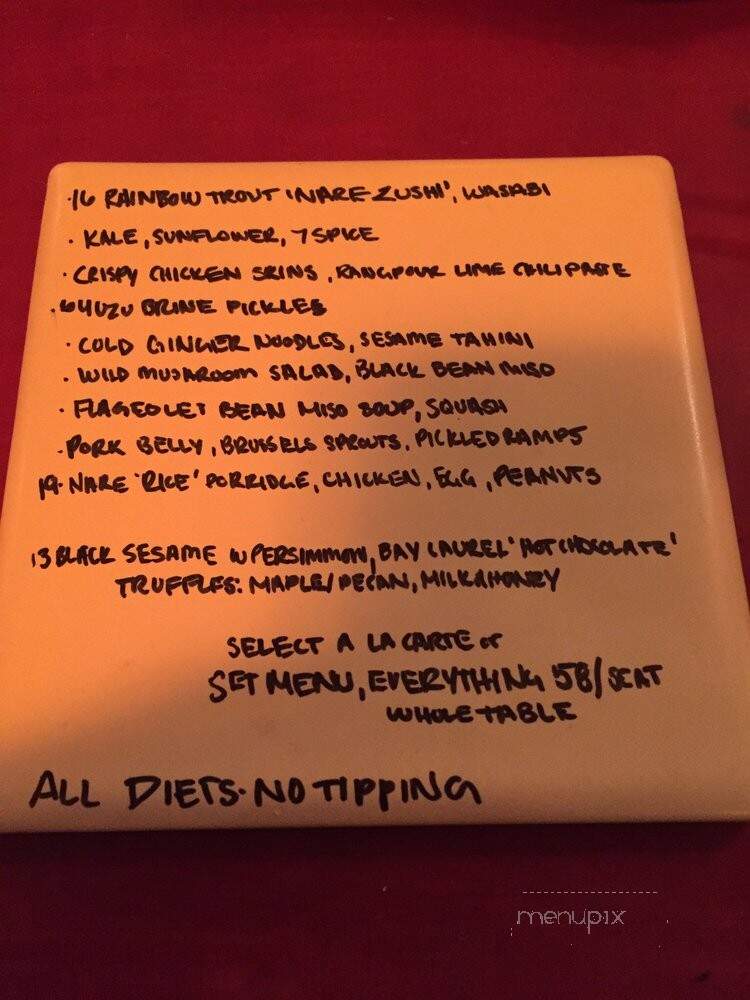 ·16 RAINBOW TROUT 'NARE ZUSHI', WASABI
· KALE, SUNFLOWER, 7 SPICE
· CRISPY CHICKEN SKINS, RANGPOUR LIME CHILI PASTE
·6 YUZU BRINE PICKLES
· COLD GINGER NOODLES, SESAME TAHINI
· WILD MUSHROOM SALAD, BLACK BEAN MISO
· FLAGEOLET BEAN MISO SOUP, SQUASH
· PORK BELLY, BRUSSELS SPROUTS, PICKLED RAMPS
19· NARE 'RICE' PORRIDGE, CHICKEN, EGG, PEANUTS
13 BLACK SESAME W PERSIMMON, BAY LAUREL 'HOT CHOCOLATE'
TRUFFLES: MAPLE/PECAN, MILK&HONEY
SELECT A LA CARTE or
SET MENU, EVERYTHING 58/SEAT
WHOLE TABLE
ALL DIETS· NO TIPPING
menupix